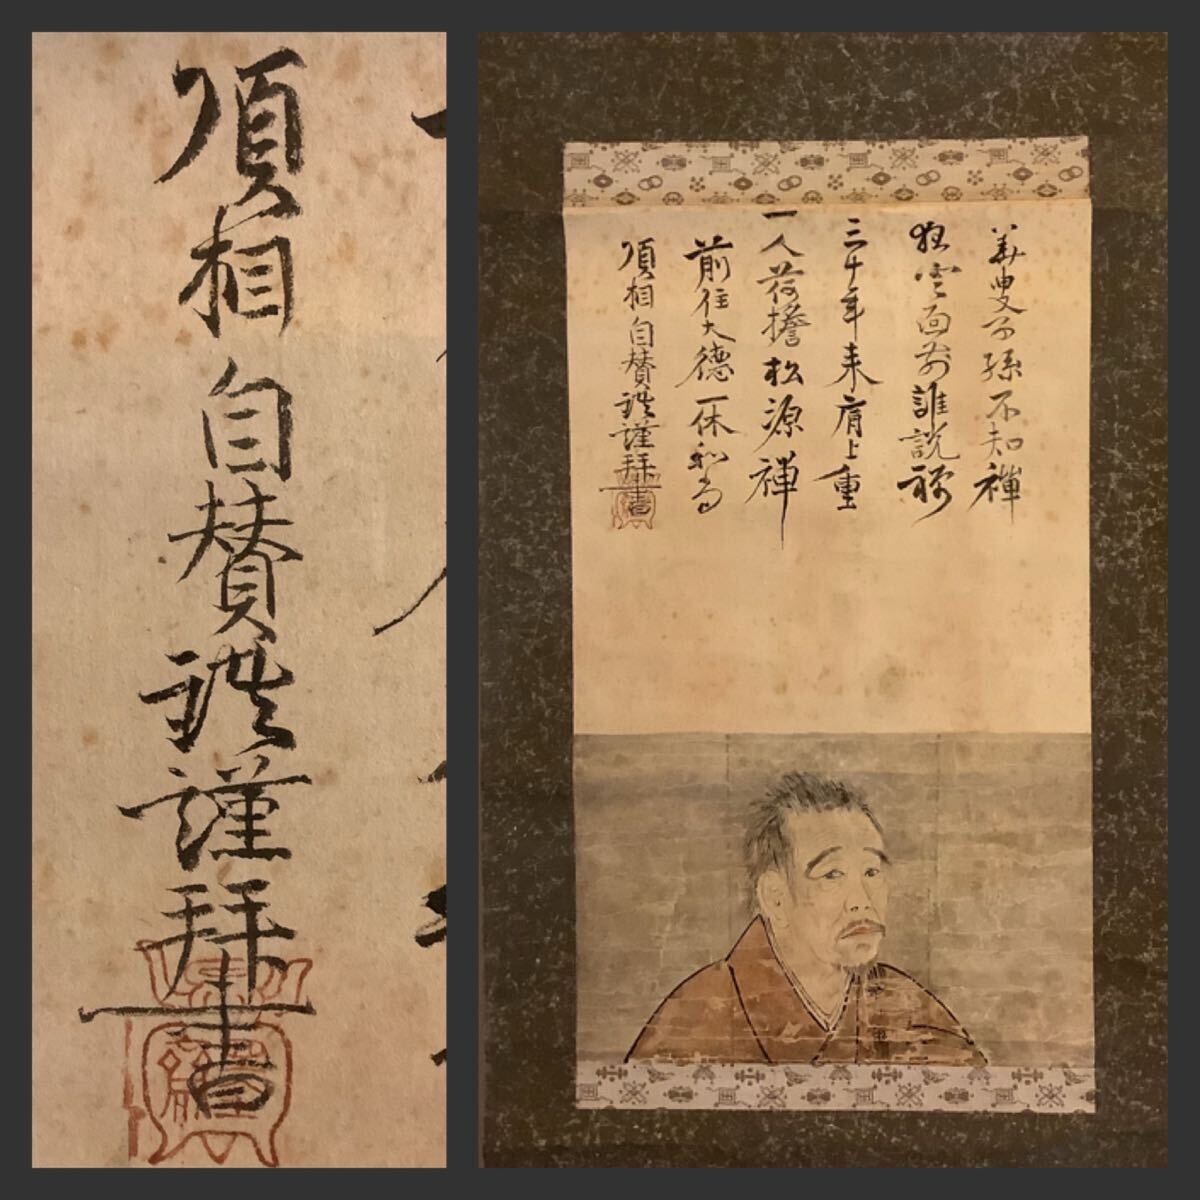 華叟子孫不知禅
狂雲面前誰説禅
三十年来肩上重
一人荷擔松源禅
前住大徳一休和尚
頂相自賛
謹拝書
頂相自賛
謹拝書